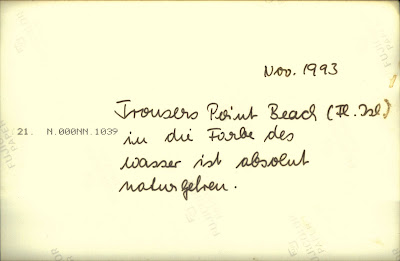 Nov. 1993
Trousers Point Beach (Fl. Isl)
21. N.000NN.1039
in die Farbe des
Wasser ist absolut
naturgetreu.